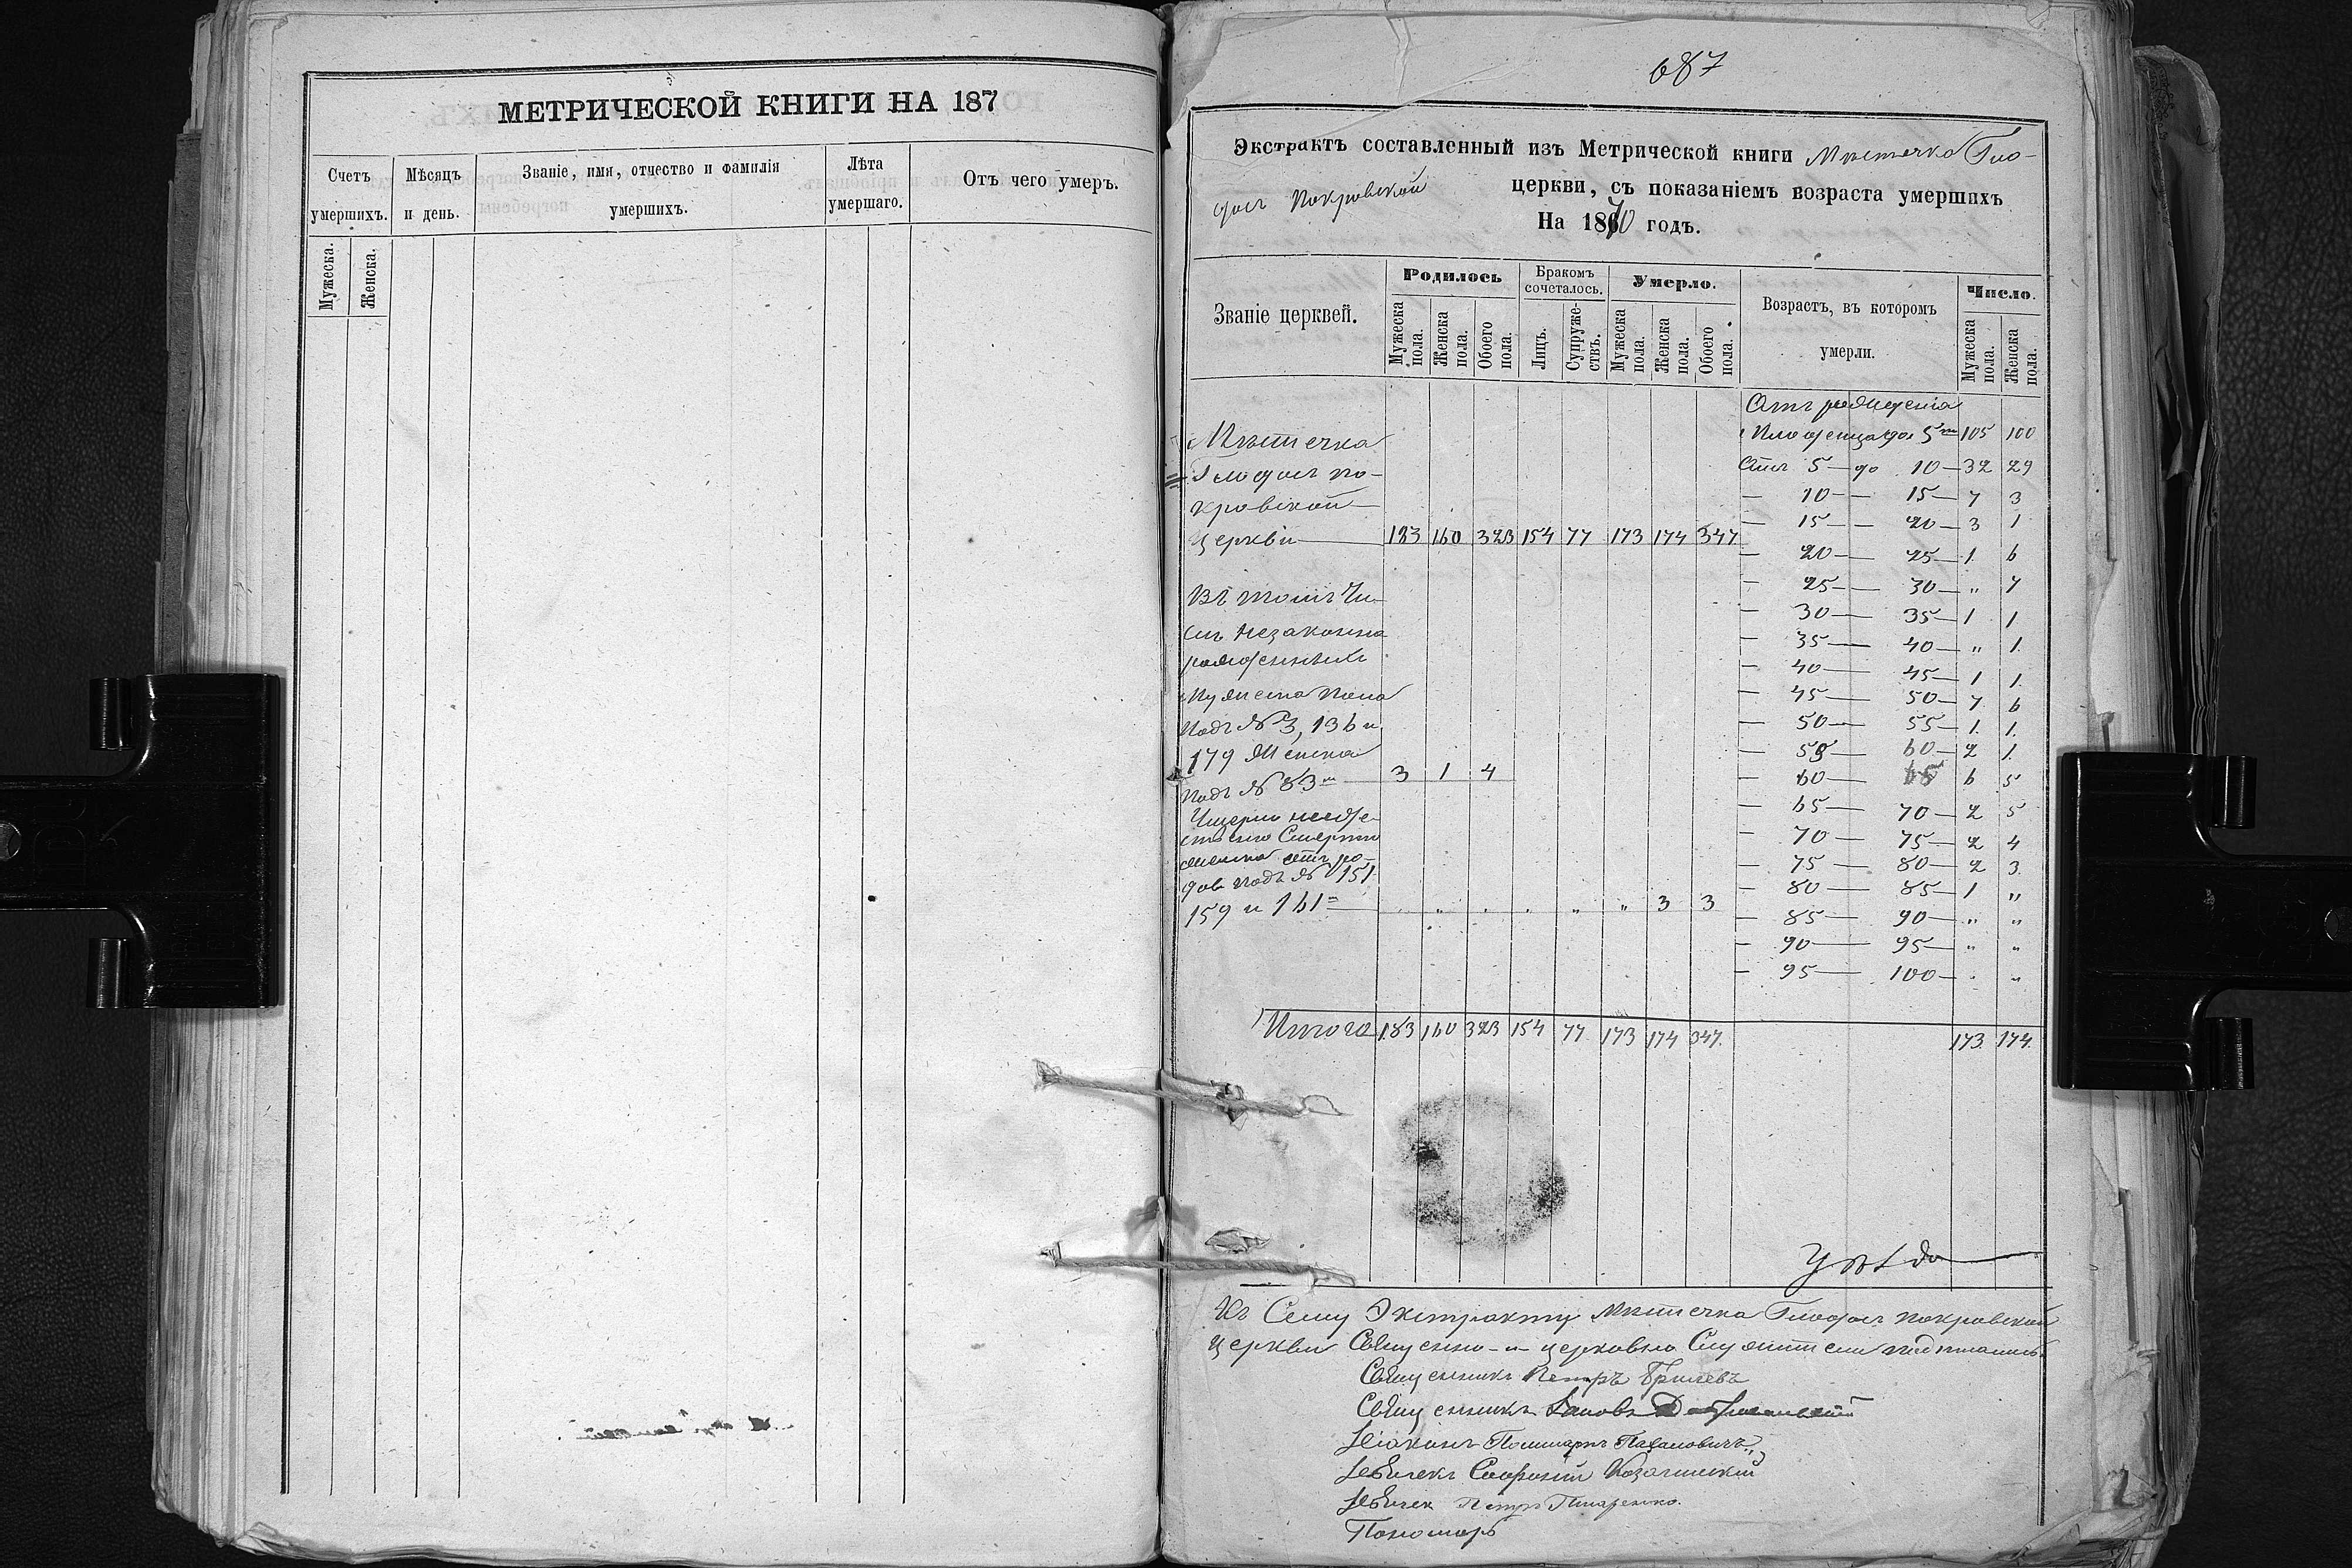 МЕТРИЧЕСКОЙ КНИГИ НА 187
Счетъ умершихъ.
Мужеска.
Женска.
Мѣсяцъ и день.
Званіе, имя, отчество и фамилія умершихъ.
Лѣта умершаго.
Отъ чего умеръ.
687
Экстрактъ составленный изъ Метрической книги Мѣстечка Глодос
Покровской церкви, съ показаніемъ возраста умершихъ
На 1870 годъ.
Званіе церквей.
Родилось
Мужеска пола.
Женска пола.
Обоего пола.
Бракомъ сочеталось.
Лицъ.
Супружествъ.
Умерло.
Мужеска пола.
Женска пола.
Обоего пола.
Возрастъ, въ которомъ умерли.
Число.
Мужеска пола.
Женска пола.
Мѣстечка
Глодосъ По-
кровской
Церкви 183 160 323 154 77 173 174 347
Въ томъ Чи-
слѣ незаконно
рожденныхъ
Мужеска пола
подъ № 3, 136 и
179 Женска
подъ № 83 3 1 4
смерти
подъ № 151
159 и 161 " " " " " " 3 3
Отъ рожденія
Младенца до 5 105 100
Отъ 5 — до 10 — 32 29
— 10 — 15 — 7 3
— 15 — 20 — 3 1
— 20 — 25 — 1 6
— 25 — 30 — " 7
— 30 — 35 — 1 1
— 35 — 40 — " 1
— 40 — 45 — 1 1
— 45 — 50 — 7 6
— 50 — 55 — 1 1
— 55 — 60 — 2 1
— 60 — 65 6 5
— 65 — 70 — 2 5
— 70 — 75 — 2 4
— 75 — 80 — 2 3
— 80 — 85 — 1 "
— 85 — 90 — " "
— 90 — 95 — " "
— 95 — 100 — " "
Итого 183 160 323 154 77 173 174 347. 173. 174.
Къ Сему Экстракту Мѣстечка Глодосъ Покровской
Церкви Священно-и-церковно Служители подписались:
Священникъ Петръ
Священникъ Іаковъ
Діаконъ
Дьячекъ Софроній Козачинскій
Дьячек Петръ Писаренко.
Пономарь